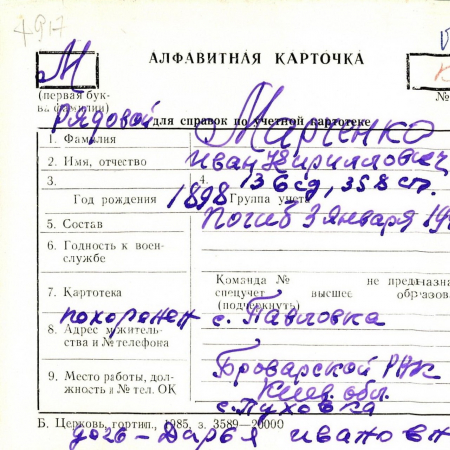 4917
АЛФАВИТНАЯ КАРТОЧКА
М
(первая бук-
ва фамилии)
№
Рядовой для справок по учетной картотеке
1. Фамилия Марченко
2. Имя, отчество Иван Кириллович
3. 4. 136сд, 358 сп.
Год рождения 1898 Группа учета
5. Состав Погиб 3 января 19
6. Годность к воен-
службе
Команда № не предназна
7. Картотека спецучет высшее образова
(подчеркнуть)
похоронен с. Павловка
8. Адрес м/житель-
ства и № телефона
Броварской РВК
9. Место работы, дол-
жность и № тел. ОК Киев. обл.
с. Пуховка
Б. Церковь, гортип., 1985, з. 3589—20000
дочь – Дарья Ивановн